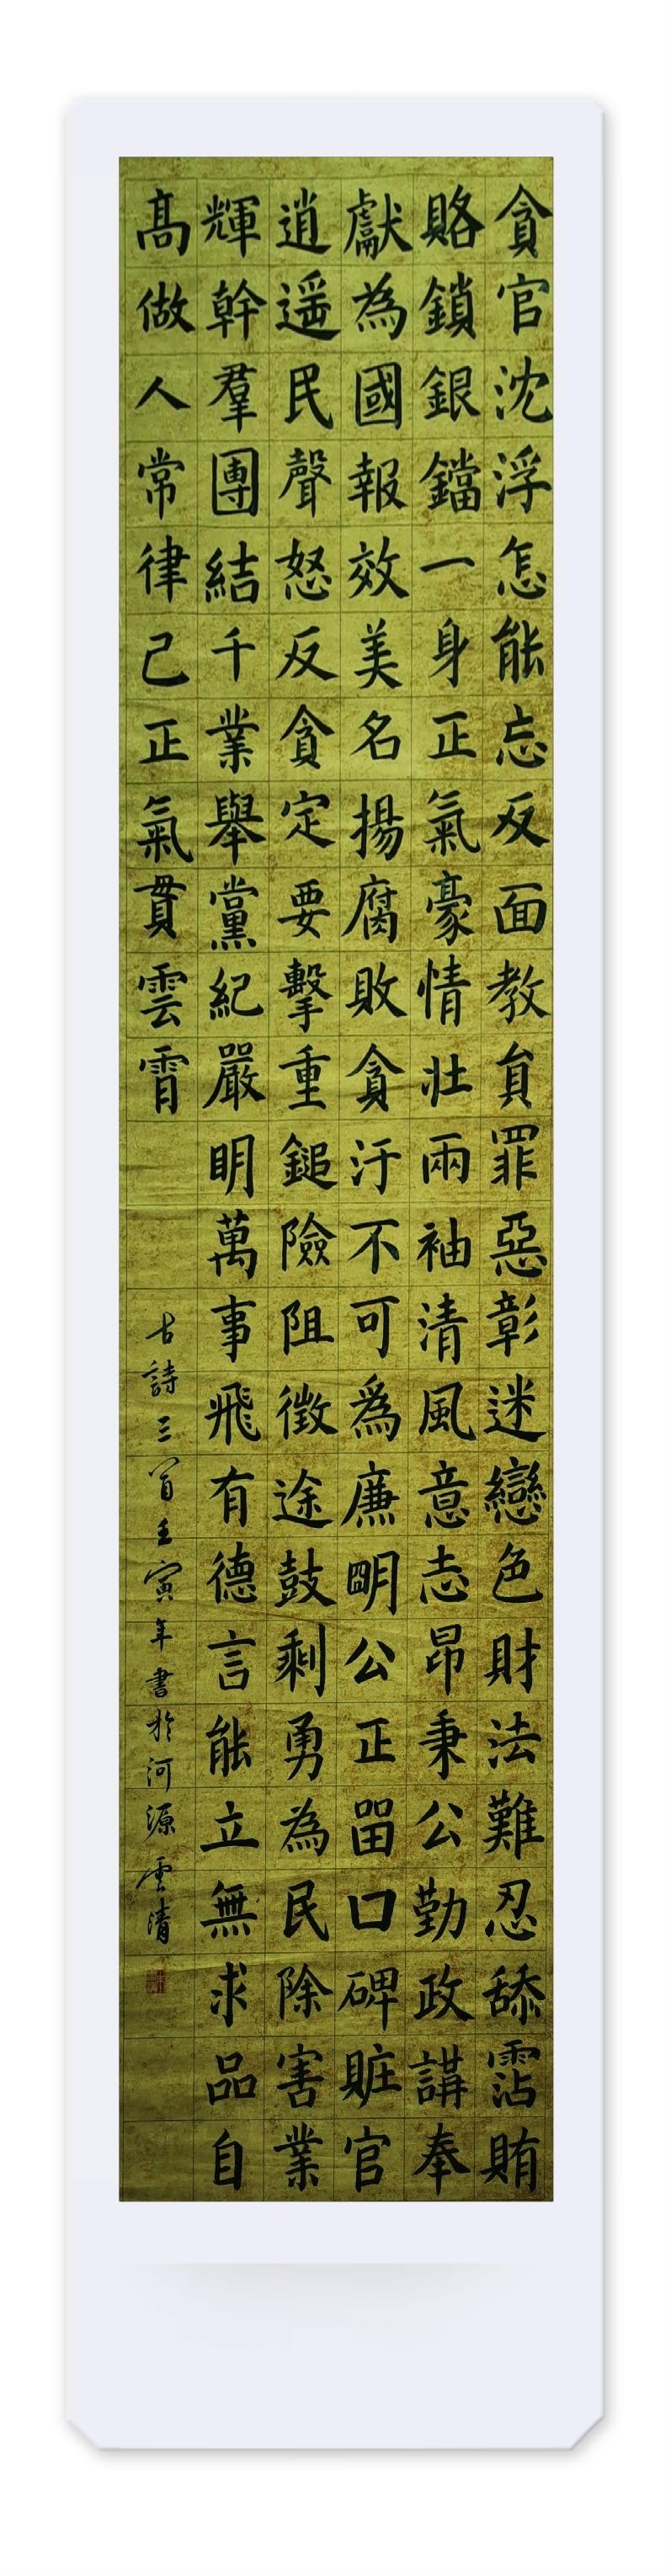 貪官沈浮怎能忘反面教貟罪惡彰迷戀色財法難忍舔霑賄
賂鎖銀鐺一身正氣豪情壯兩袖清風意志昂秉公勤政講奉
獻為國報效美名揚腐敗貪汙不可為廉明公正畱口碑賍官
逍遥民聲怒反貪定要擊重鎚險阻徵途鼓剩勇為民除害業
輝幹羣團結千業舉黨紀嚴明萬事飛有德言能立無求品自
高做人常律己正氣貫雲霄
古詩三首壬寅年書於河源雲清